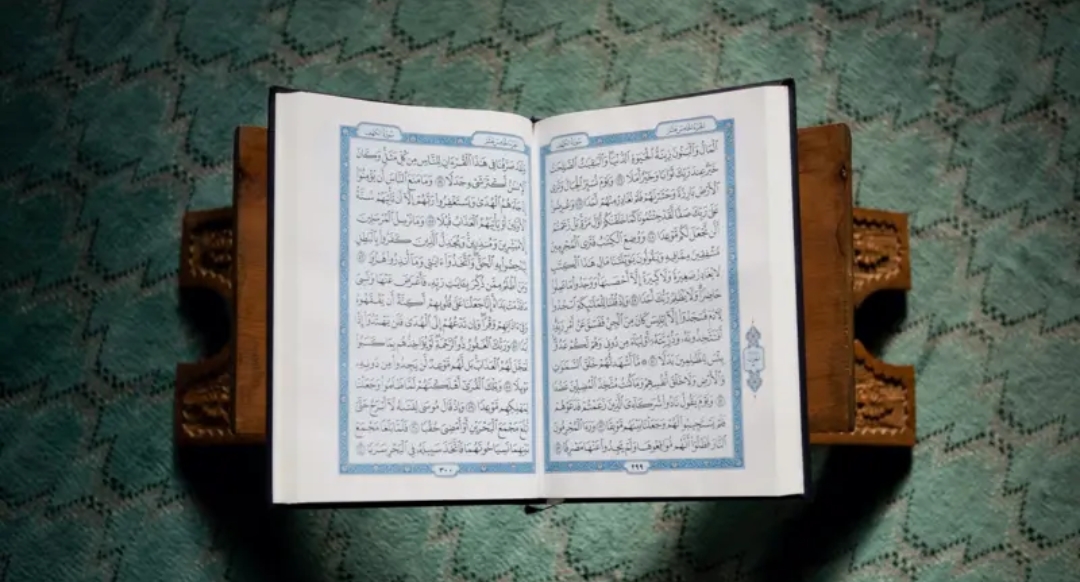 الجزء الخامس عشر
سورة الكهف
ٱلْمَالُ وَٱلْبَنُونَ زِينَةُ ٱلْحَيَوٰةِ ٱلدُّنْيَا وَٱلْبَٰقِيَٰتُ ٱلصَّٰلِحَٰتُ
خَيْرٌ عِندَ رَبِّكَ ثَوَابًا وَخَيْرٌ أَمَلًا ٤٦ وَيَوْمَ نُسَيِّرُ ٱلْجِبَالَ وَتَرَى
ٱلْأَرْضَ بَارِزَةً وَحَشَرْنَٰهُمْ فَلَمْ نُغَادِرْ مِنْهُمْ أَحَدًا ٤٧ وَعُرِضُوا۟
عَلَىٰ رَبِّكَ صَفًّا لَّقَدْ جِئْتُمُونَا كَمَا خَلَقْنَٰكُمْ أَوَّلَ مَرَّةٍۭ بَلْ زَعَمْتُمْ
أَلَّن نَّجْعَلَ لَكُم مَّوْعِدًا ٤٨ وَوُضِعَ ٱلْكِتَٰبُ فَتَرَى ٱلْمُجْرِمِينَ
مُشْفِقِينَ مِمَّا فِيهِ وَيَقُولُونَ يَٰوَيْلَتَنَا مَالِ هَٰذَا ٱلْكِتَٰبِ
لَا يُغَادِرُ صَغِيرَةً وَلَا كَبِيرَةً إِلَّآ أَحْصَىٰهَا وَوَجَدُوا۟ مَا عَمِلُوا۟
حَاضِرًا وَلَا يَظْلِمُ رَبُّكَ أَحَدًا ٤٩ وَإِذْ قُلْنَا لِلْمَلَٰٓئِكَةِ ٱسْجُدُوا۟
لِءَادَمَ فَسَجَدُوٓا۟ إِلَّآ إِبْلِيسَ كَانَ مِنَ ٱلْجِنِّ فَفَسَقَ عَنْ أَمْرِ رَبِّهِۦٓ
أَفَتَتَّخِذُونَهُۥ وَذُرِّيَّتَهُۥٓ أَوْلِيَآءَ مِن دُونِى وَهُمْ لَكُمْ عَدُوٌّۢ
بِئْسَ لِلظَّٰلِمِينَ بَدَلًا ٥٠ ۞ مَّآ أَشْهَدتُّهُمْ خَلْقَ ٱلسَّمَٰوَٰتِ
وَٱلْأَرْضِ وَلَا خَلْقَ أَنفُسِهِمْ وَمَا كُنتُ مُتَّخِذَ ٱلْمُضِلِّينَ عَضُدًا
٥١ وَيَوْمَ يَقُولُ نَادُوا۟ شُرَكَآءِىَ ٱلَّذِينَ زَعَمْتُمْ فَدَعَوْهُمْ
فَلَمْ يَسْتَجِيبُوا۟ لَهُمْ وَجَعَلْنَا بَيْنَهُم مَّوْبِقًا ٥٢ وَرَءَا ٱلْمُجْرِمُونَ
ٱلنَّارَ فَظَنُّوٓا۟ أَنَّهُم مُّوَاقِعُوهَا وَلَمْ يَجِدُوا۟ عَنْهَا مَصْرِفًا ٥٣
٢٩٩
الجزء الخامس عشر
سورة الكهف
وَلَقَدْ صَرَّفْنَا فِى هَٰذَا ٱلْقُرْءَانِ لِلنَّاسِ مِن كُلِّ مَثَلٍ وَكَانَ
ٱلْإِنسَٰنُ أَكْثَرَ شَىْءٍ جَدَلًا ٥٤ وَمَا مَنَعَ ٱلنَّاسَ أَن يُؤْمِنُوٓا۟
إِذْ جَآءَهُمُ ٱلْهُدَىٰ وَيَسْتَغْفِرُوا۟ رَبَّهُمْ إِلَّآ أَن تَأْتِيَهُمْ سُنَّةُ
ٱلْأَوَّلِينَ أَوْ يَأْتِيَهُمُ ٱلْعَذَابُ قُبُلًا ٥٥ وَمَا نُرْسِلُ ٱلْمُرْسَلِينَ
إِلَّا مُبَشِّرِينَ وَمُنذِرِينَ وَيُجَٰدِلُ ٱلَّذِينَ كَفَرُوا۟ بِٱلْبَٰطِلِ
لِيُدْحِضُوا۟ بِهِ ٱلْحَقَّ وَٱتَّخَذُوٓا۟ ءَايَٰتِى وَمَآ أُنذِرُوا۟ هُزُوًا ٥٦
وَمَنْ أَظْلَمُ مِمَّن ذُكِّرَ بِـَٔايَٰتِ رَبِّهِۦ فَأَعْرَضَ عَنْهَا وَنَسِىَ
مَا قَدَّمَتْ يَدَاهُ إِنَّا جَعَلْنَا عَلَىٰ قُلُوبِهِمْ أَكِنَّةً أَن يَفْقَهُوهُ
وَفِىٓ ءَاذَانِهِمْ وَقْرًا وَإِن تَدْعُهُمْ إِلَى ٱلْهُدَىٰ فَلَن يَهْتَدُوٓا۟ إِذًا
أَبَدًا ٥٧ وَرَبُّكَ ٱلْغَفُورُ ذُو ٱلرَّحْمَةِ لَوْ يُؤَاخِذُهُم بِمَا كَسَبُوا۟
لَعَجَّلَ لَهُمُ ٱلْعَذَابَ بَل لَّهُم مَّوْعِدٌ لَّن يَجِدُوا۟ مِن دُونِهِۦ
مَوْئِلًا ٥٨ وَتِلْكَ ٱلْقُرَىٰٓ أَهْلَكْنَٰهُمْ لَمَّا ظَلَمُوا۟ وَجَعَلْنَا
لِمَهْلِكِهِم مَّوْعِدًا ٥٩ وَإِذْ قَالَ مُوسَىٰ لِفَتَىٰهُ لَآ أَبْرَحُ حَتَّىٰٓ
أَبْلُغَ مَجْمَعَ ٱلْبَحْرَيْنِ أَوْ أَمْضِىَ حُقُبًا ٦٠ فَلَمَّا بَلَغَا مَجْمَعَ
بَيْنِهِمَا نَسِيَا حُوتَهُمَا فَٱتَّخَذَ سَبِيلَهُۥ فِى ٱلْبَحْرِ سَرَبًا ٦١
٣٠٠